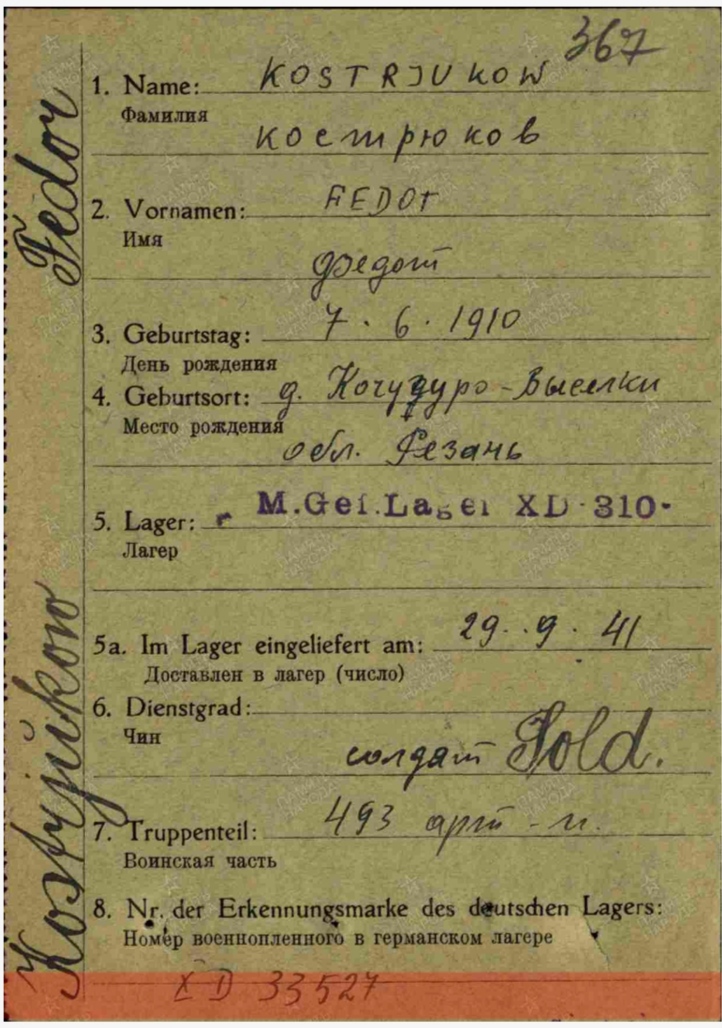 367
1. Name: KOSTRJUKOW
Фамилия
Кострюков
2. Vornamen: FEDOT
Имя
Федот
3. Geburtstag: 7.6.1910
День рождения
4. Geburtsort: д. -Выселки
Место рождения
обл. Резань
5. Lager: M.Gef.Lager XD-310-
Лагер
5a. Im Lager eingeliefert am: 29.9.41
Доставлен в лагер (число)
6. Dienstgrad:
Чин
солдат Sold.
7. Truppenteil: 493 арт-п.
Воинская часть
8. Nr. der Erkennungsmarke des deutschen Lagers:
Номер военнопленного в германском лагере
XD 33527
Kostrjukow Fedor